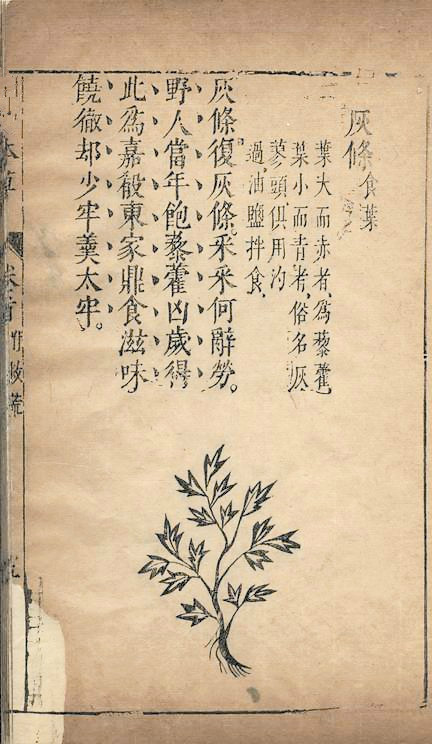 灰條食葉
葉大而赤者、為藜藿、
葉小而青者、俗名灰
蓼頭、俱用汋
過、油鹽拌食、
灰條復灰條。采采何辭勞。
野人當年飽藜藿凶歲得
此為嘉殽東家鼎食滋味
饒徹却少牢羹太牢。
本草